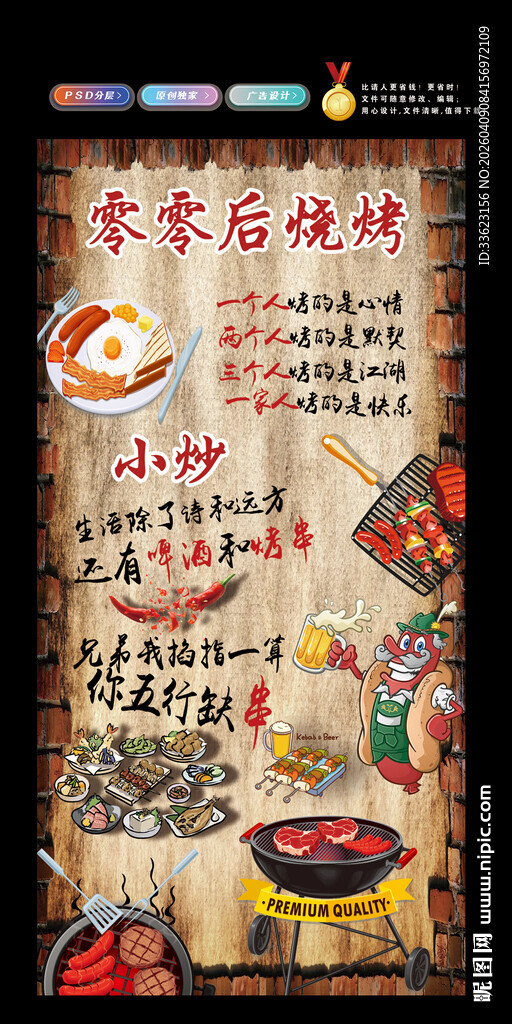 PSD分层 >
原创独家 >
广告设计 >
比请人更省钱！更省时！
文件可随意修改、编辑；
用心设计，文件清晰，值得下载
零零后烧烤
一个人烤的是心情
两个人烤的是默契
三个人烤的是江湖
一家人烤的是快乐
小炒
生活除了诗和远方
还有啤酒和烤串
兄弟我掐指一算
你五行缺串
Kebab & Beer
PREMIUM QUALITY
ID:33623156 NO:20260409084156972109
昵图网 www.nipic.com